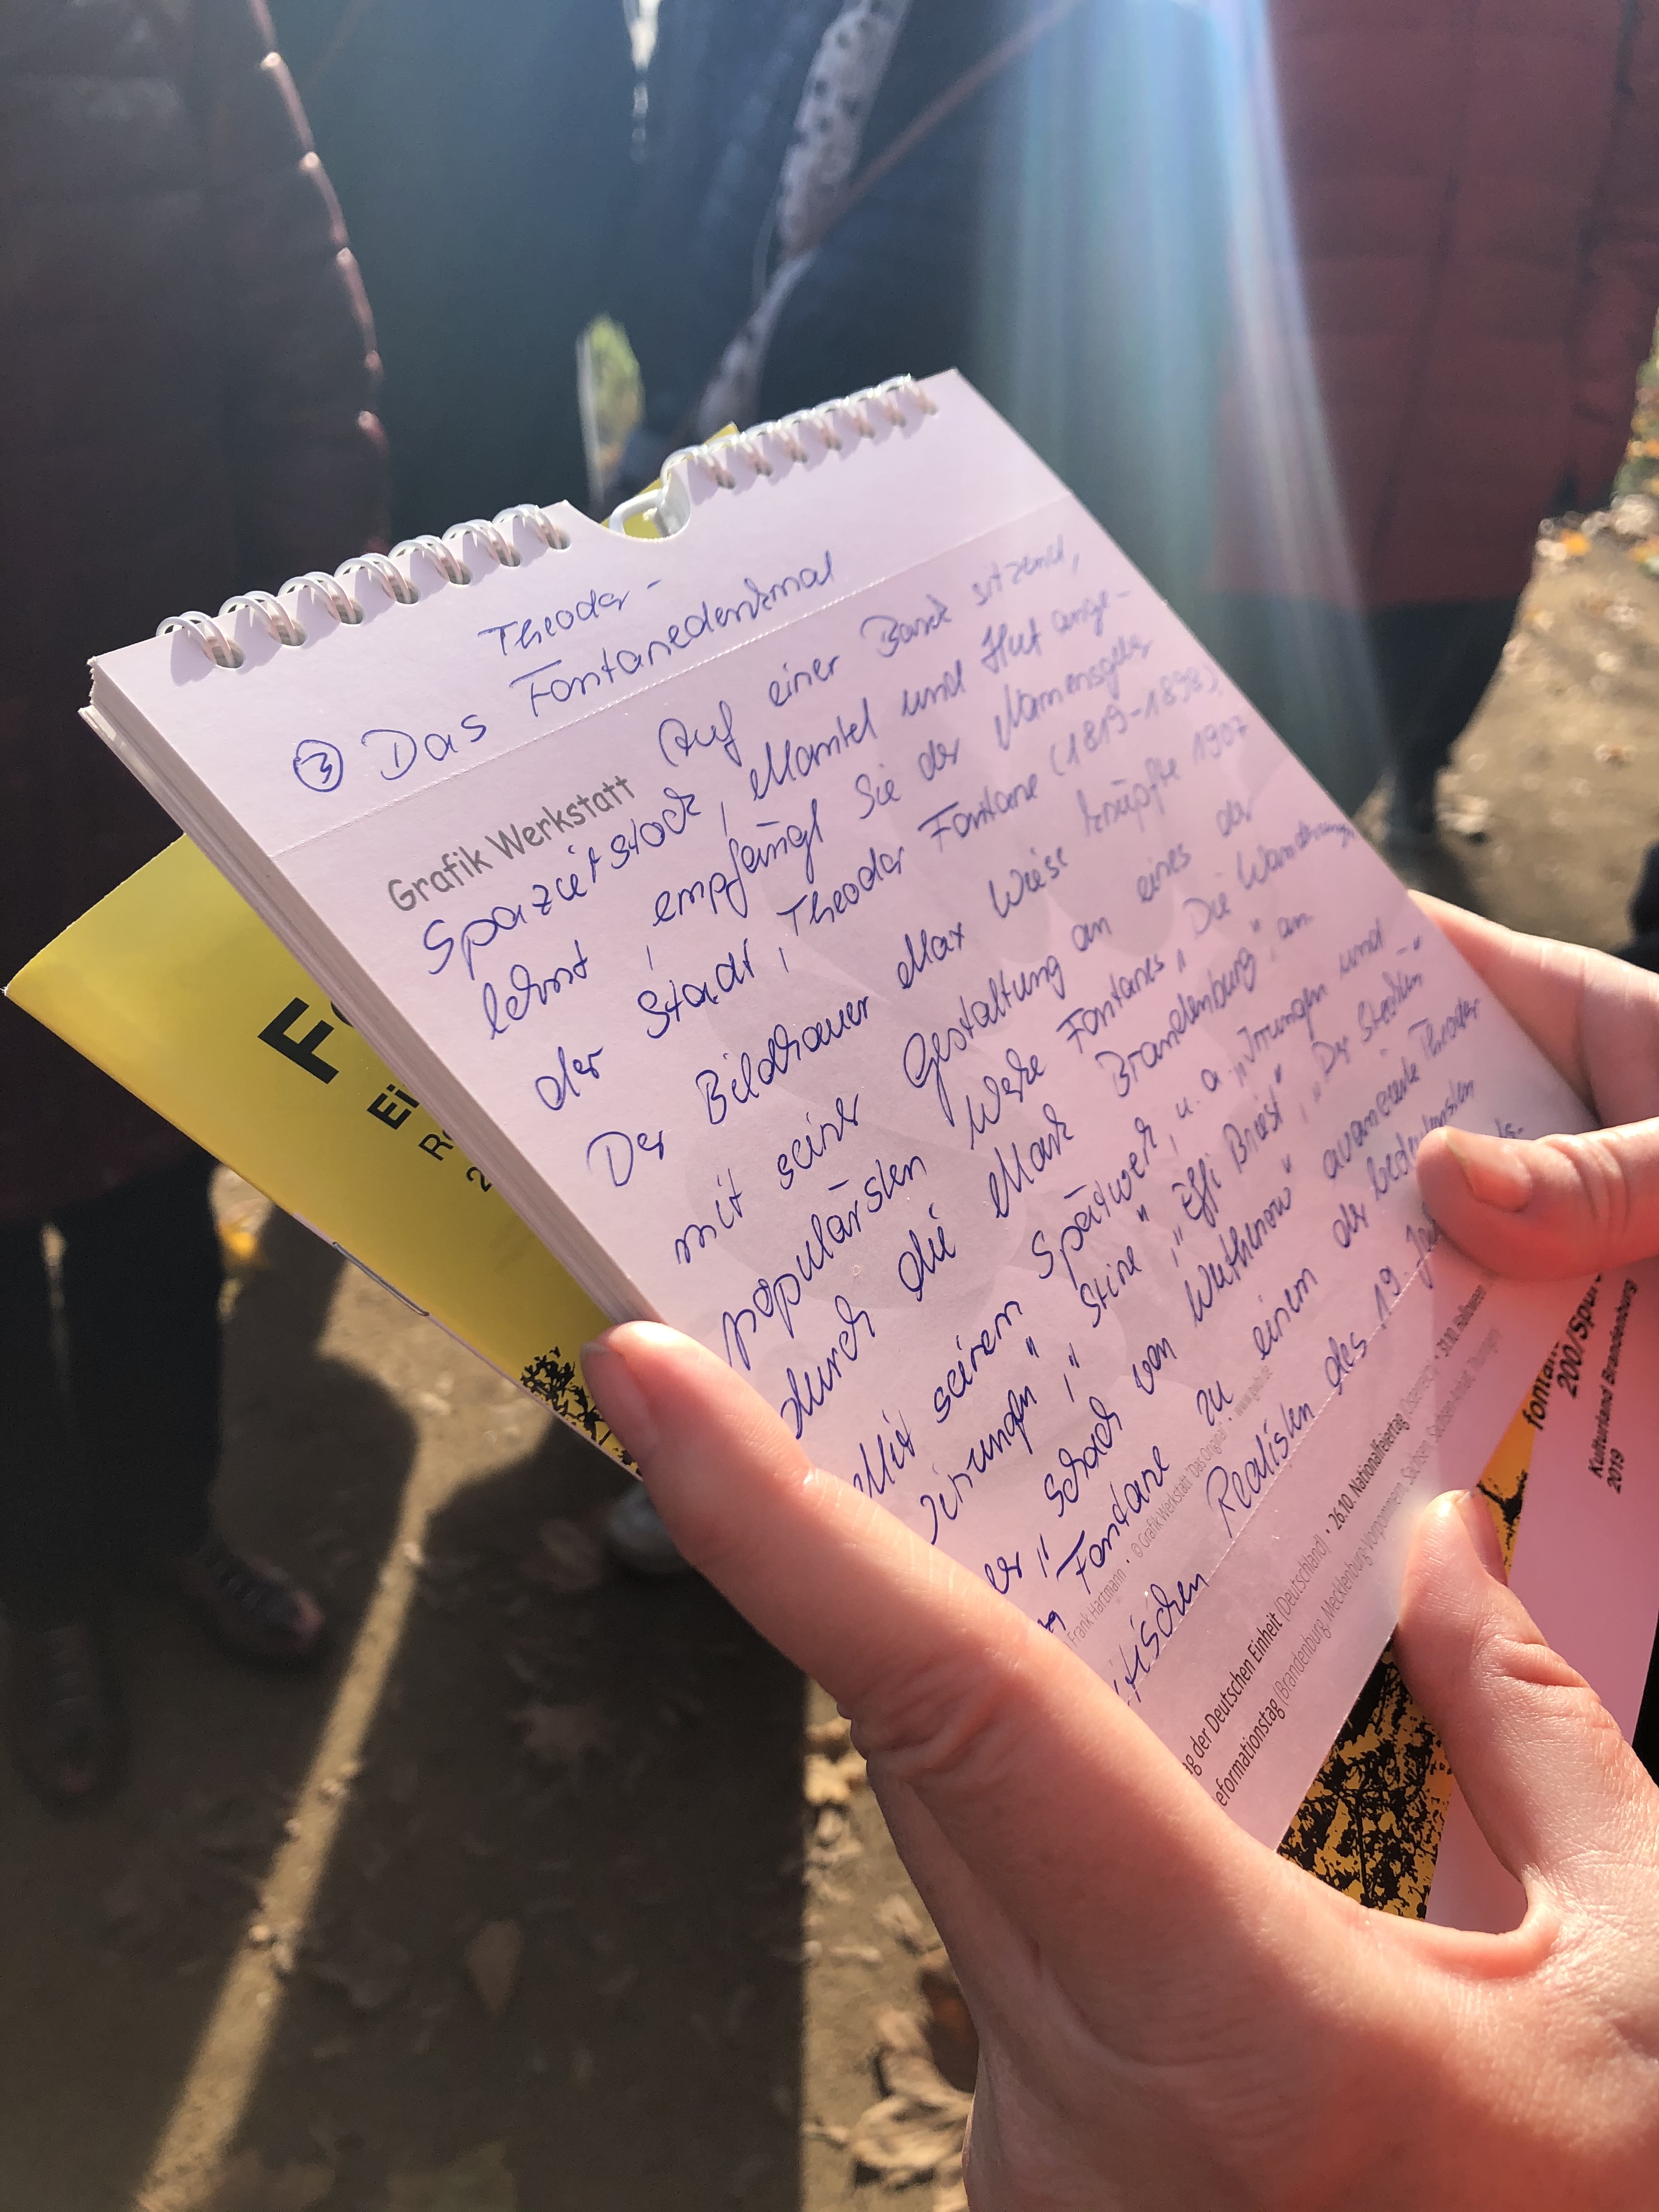 Theodor-
③ Das Fontanedenkmal
Grafik Werkstatt
Auf einer Bank sitzend,
Spazierstock, Mantel und Hut ange-
lehnt, empfängt Sie der Namensgeber
der Stadt, Theodor Fontane (1819-1898).
Der Bildhauer Max Wiese knüpfte 1907
mit seiner Gestaltung an eines der
populärsten Werke Fontanes „Die Wanderungen
durch die Mark Brandenburg" an.
Mit seinem Spätwerk, u. a „Irrungen und
Wirrungen", "Stine", "Effi Briest", "Der Stechlin"
er "Schach von Wuthenow" avancierte Theodor
Fontane zu einem der bedeutendsten
itischen Realisten des 19. Ja
Frank Hartmann · © Grafik Werkstatt "Das Original" · www.
ag der Deutschen Einheit (Deutschland) · 26.10. Nationalfeiertag (Österreich) · 31.10. Halloween
eformationstag (Brandenburg, Mecklenburg-Vorpommern, Sachsen, Sachsen-Anhalt, Thüringen)
F
Ei
R
2
fontan
200/Spu
Kulturland Brandenburg
2019